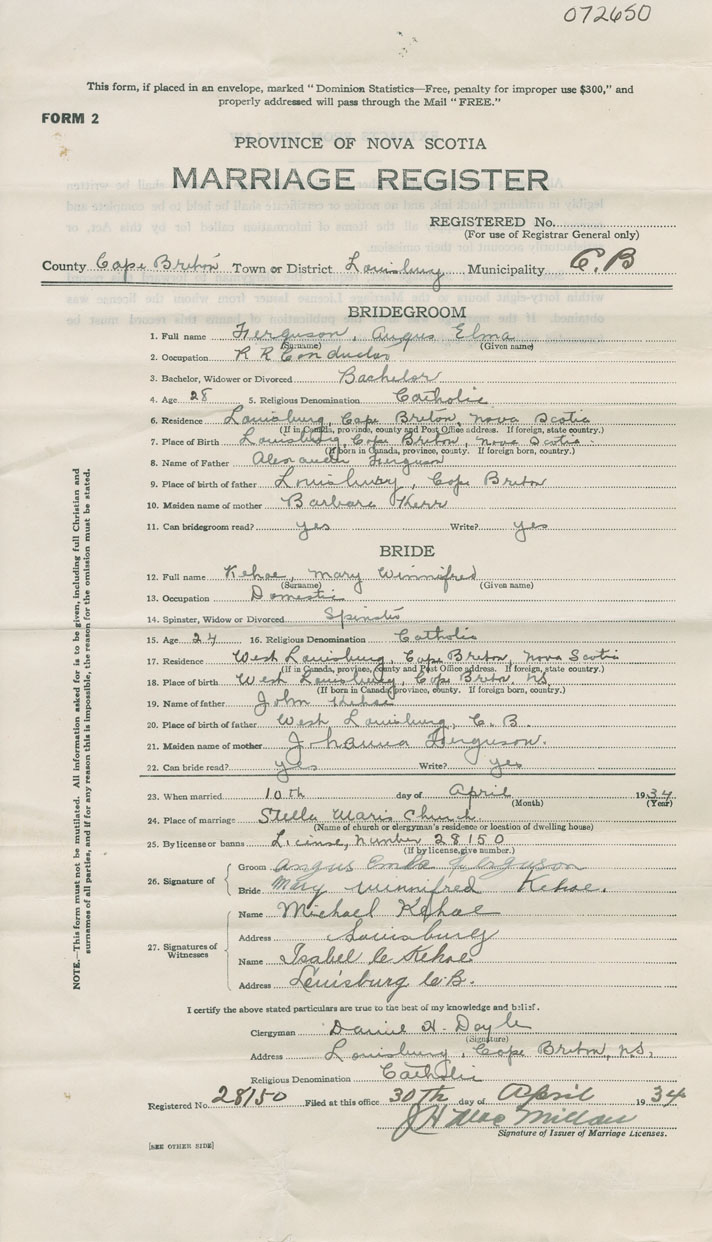 072650
This form, if placed in an envelope, marked "Dominion Statistics—Free, penalty for improper use $300," and
properly addressed will pass through the Mail "FREE."
FORM 2
PROVINCE OF NOVA SCOTIA
MARRIAGE REGISTER
REGISTERED No.
(For use of Registrar General only)
County Cape Breton Town or District Louisburg Municipality C.B
BRIDEGROOM
1. Full name Ferguson, Angus Elma
(Surname) (Given name)
2. Occupation R R Conductor
3. Bachelor, Widower or Divorced Bachelor
4. Age 28 5. Religious Denomination Catholic
6. Residence Louisburg, Cape Breton, Nova Scotia
(If in Canada, province, county and Post Office address. If foreign, state country.)
7. Place of Birth Louisburg, Cape Breton, Nova Scotia
(If born in Canada, province, county. If foreign born, country.)
8. Name of Father Alexander Ferguson
9. Place of birth of father Louisburg, Cape Breton
10. Maiden name of mother Barbara Kerr
11. Can bridegroom read? yes Write? yes
BRIDE
12. Full name Kehoe, Mary Winnifred
(Surname) (Given name)
13. Occupation Domestic
14. Spinster, Widow or Divorced Spinster
15. Age 24 16. Religious Denomination Catholic
17. Residence West Louisburg, Cape Breton, Nova Scotia
(If in Canada, province, county and Post Office address. If foreign, state country.)
18. Place of birth West Louisburg, Cape Breton, NS
(If born in Canada, province, county. If foreign born, country.)
19. Name of father John Kehoe
20. Place of birth of father West Louisburg, C.B.
21. Maiden name of mother Johanna Ferguson.
22. Can bride read? yes Write? yes
23. When married 10th day of April 1934
(Month) (Year)
24. Place of marriage Stella Maris Church
(Name of church or clergyman's residence or location of dwelling house)
25. By license or banns License, Number 28150
(If by license, give number.)
26. Signature of
Groom Angus Ferguson
Bride Mary Winnifred Kehoe.
27. Signatures of Witnesses
Name Michael Kehoe
Address Louisburg
Name Isabel C Kehoe
Address Louisburg C.B.
I certify the above stated particulars are true to the best of my knowledge and belief.
Clergyman Daniel H. Doyle
(Signature)
Address Louisburg, Cape Breton, N.S.
Religious Denomination Catholic
Registered No. 28150 Filed at this office 30th day of April 1934
J H MacMillan
Signature of Issuer of Marriage Licenses.
[SEE OTHER SIDE]
NOTE.—This form must not be mutilated. All information asked for is to be given, including full Christian and
surnames of all parties, and if for any reason this is impossible, the reason for the omission must be stated.